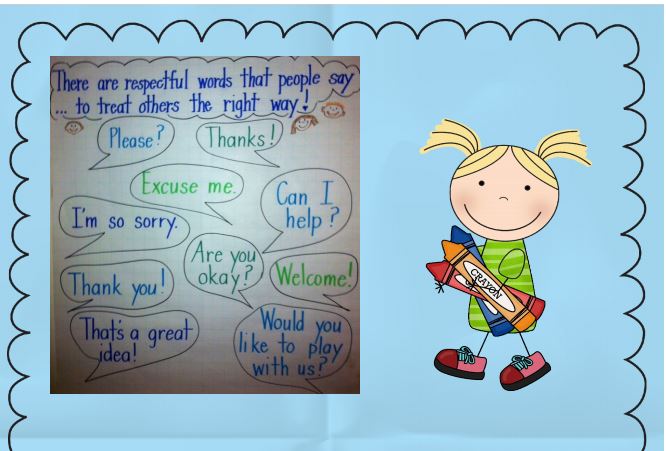 There are respectful words that people say
... to treat others the right way!
Please?
Thanks!
Excuse me.
Can I
help?
I'm so sorry.
Are you
okay?
Welcome!
Thank you!
That's a great
idea!
Would you
like to play
with us?
CRAYON